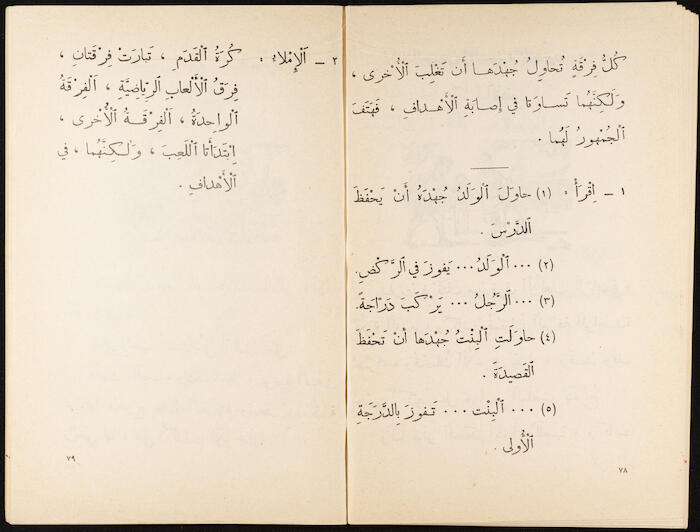 كُلُّ فِرْقَةٍ تُحاوِلُ جُهْدَها أَن تَغْلِبَ الْأُخرى ،
وَلٰكِنَّهُما تَساوَتا في إِصابَةِ الْأَهْدافِ ، فَهَتَفَ
الْجُمْهورُ لَهُما .
١ – اِقْرَأْ : (١) حاوَلَ الْوَلَدُ جُهْدَهُ أَنْ يَحْفَظَ
الدَّرْسَ .
(٢) ... الْوَلَدُ ... يَفوزَ في الرَّكْضِ.
(٣) ... الرَّجُلُ ... يَرْكَبَ دَرّاجَةً.
(٤) حاوَلَتِ الْبِنْتُ جُهْدَها أَنْ تَحْفَظَ
القَصيدَةَ .
(٥) ... الْبِنْت ... تَفوزَ بِالدَّرَجَةِ
الْأُولى .
٧٨
٢ – الْإِمْلاءُ : كُرَةُ الْقَدَمِ ، تَبارَتْ فِرْقَتانِ ،
فِرَقُ الْأَلْعابِ الرِّياضِيَّةِ ، الْفِرْقَةُ
الْواحِدَةُ ، الْفِرْقَةُ الْأُخْرى ،
اِبْتَدَأَتا اللَّعِبَ ، وَلٰكِنَّهُما ، في
الْأَهْدافِ .
٧٩